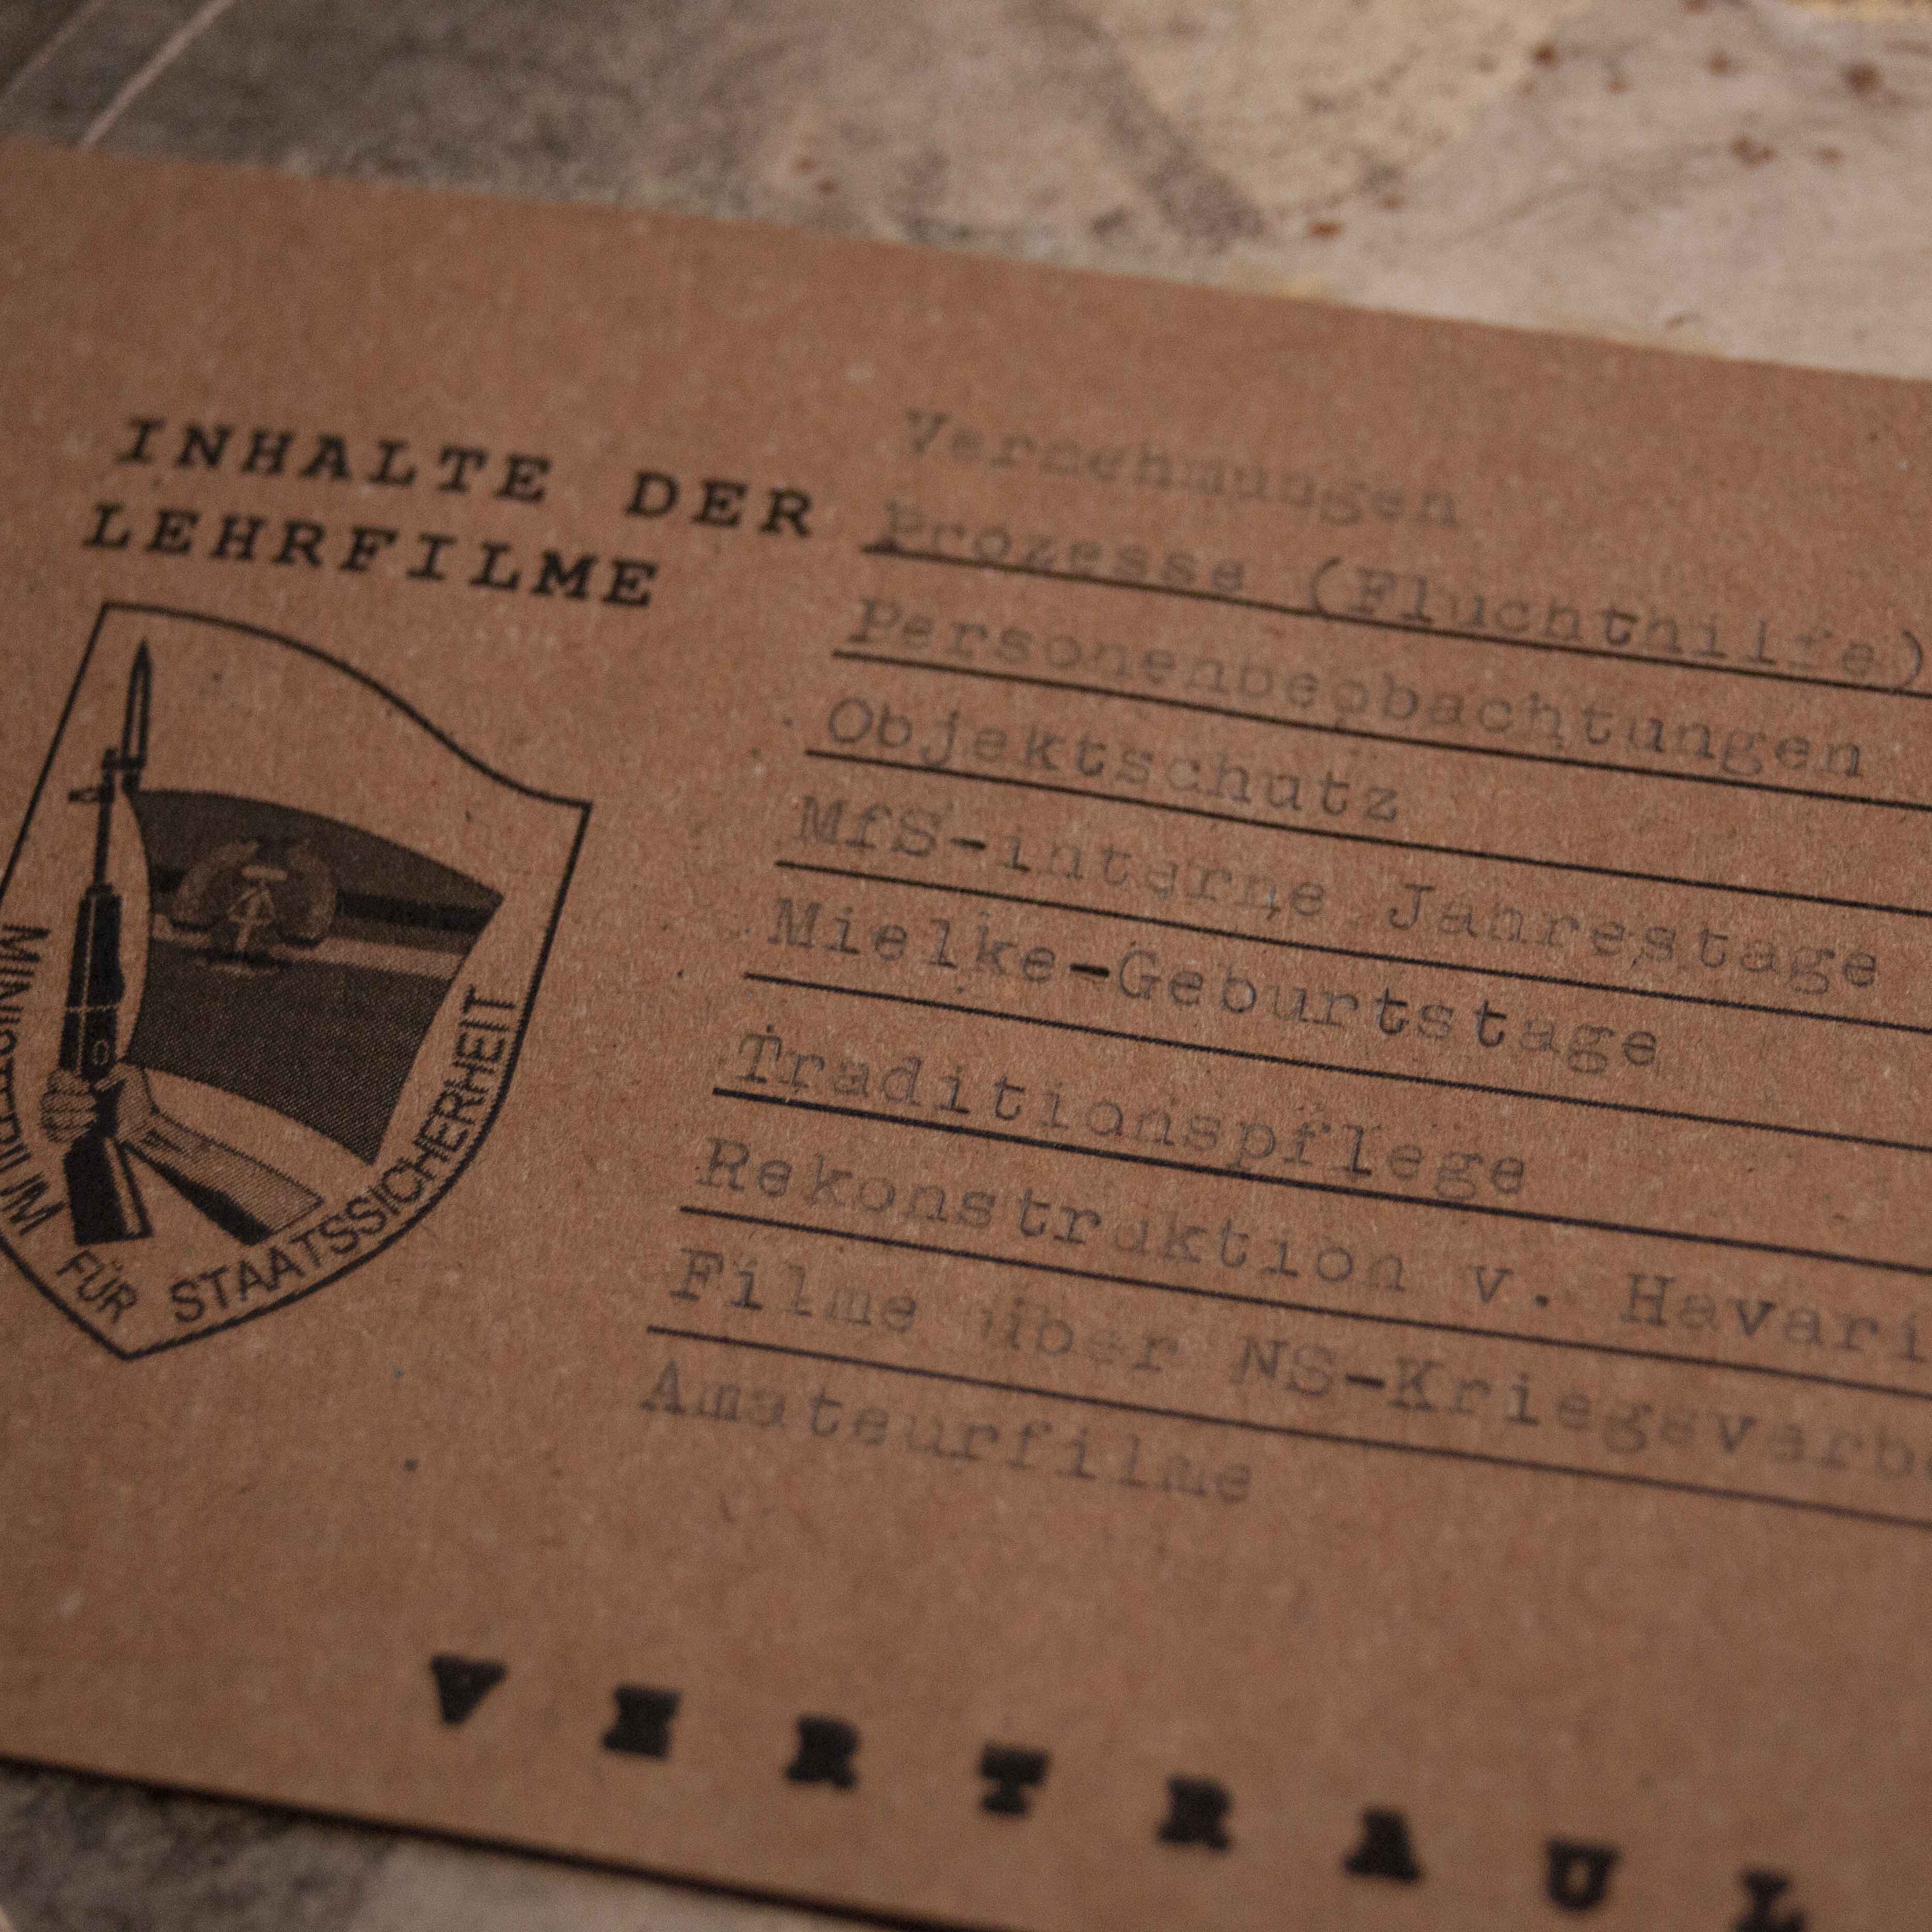 INHALTE DER
LEHRFILME
Vernehmungen
Prozesse (Fluchthilfe)
Personenbeobachtungen
Objektschutz
MfS-interne Jahrestage
Mielke-Geburtstage
Traditionspflege
Rekonstruktion v. Havari
Filme über NS-Kriegsverb
Amateurfilme
MINISTERIUM FÜR STAATSSICHERHEIT
VERTRAUL